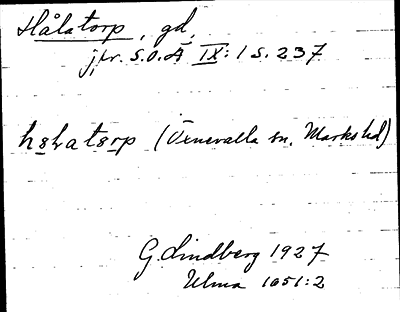 Hålatorp, gd,
jfr. S.O.Ä IX:1 s. 237
(Öxnevalla sn, Marks hd)
G. Lindberg 1927
Ulma 1051:2